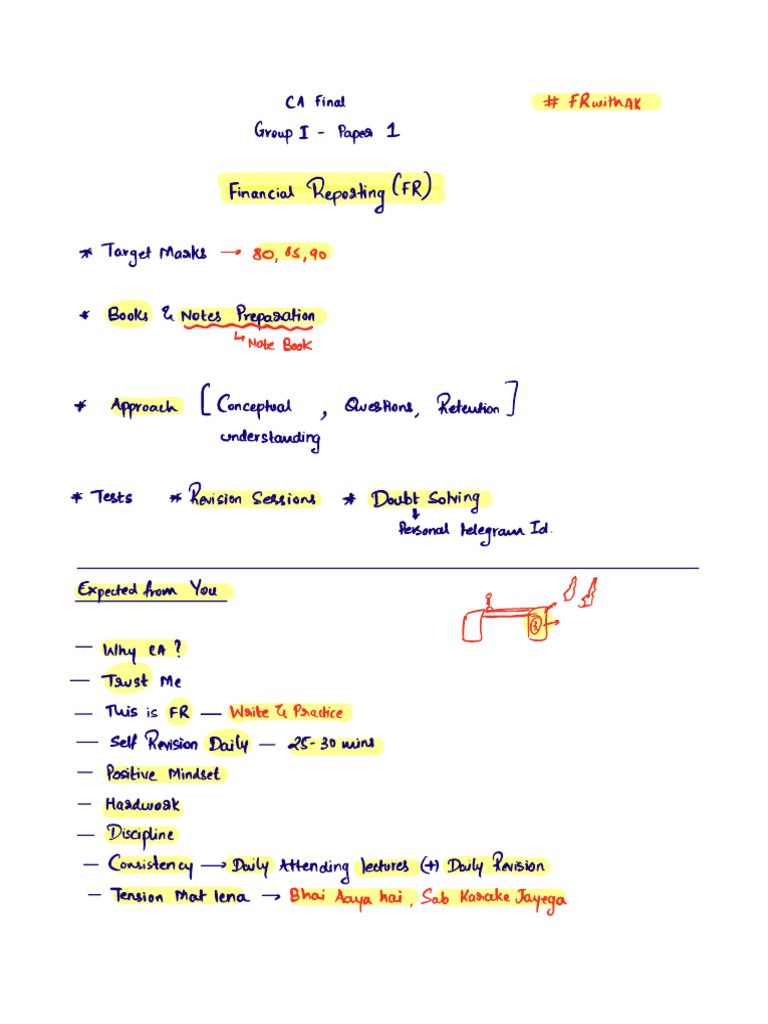 CA Final
# FRwithAK
Group I - Paper 1
Financial Reporting (FR)
* Target Marks → 80, 85, 90
* Books & Notes Preparation
↳ Note Book
* Approach [Conceptual understanding, Questions, Retention]
* Tests * Revision Sessions * Doubt Solving
↓
Personal telegram Id.
Expected from You
— Why CA?
— Trust Me
— This is FR — Write & Practice
— Self Revision Daily — 25-30 mins
— Positive Mindset
— Hardwork
— Discipline
— Consistency → Daily Attending lectures (+) Daily Revision
— Tension Mat lena → Bhai Aaya hai, Sab Karake Jayega